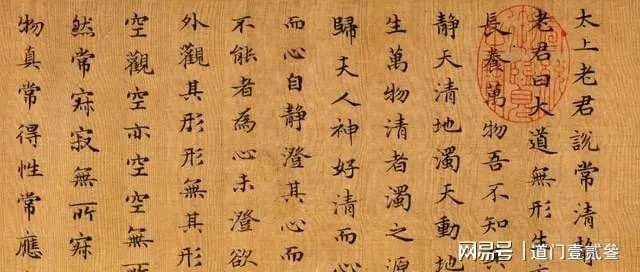 太上老君說常清静
老君曰大道無形生
長養萬物吾不知其
静天清地濁天動地
生萬物清者濁之源
歸夫人神好清而心
而心自静澄其心而
不能者為心未澄欲
外觀其形形無其形
空觀空亦空空無
然常寂寂無所寂
物真常得性常應
网易号 | 道门壹贰叁